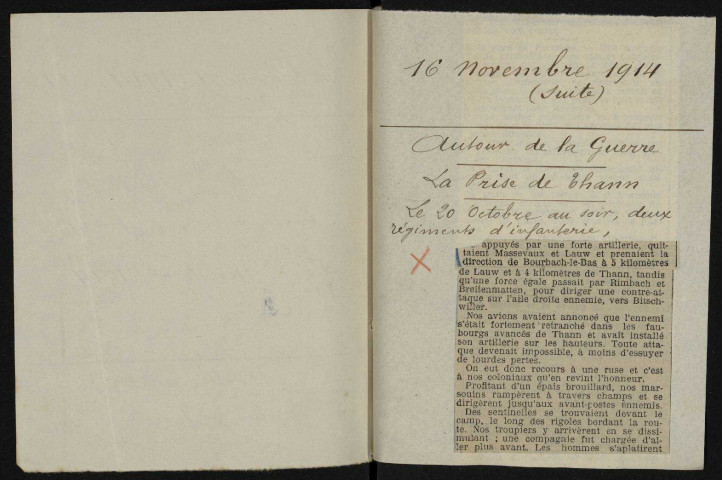 16 Novembre 1914
(Suite)
Autour de la Guerre
La Prise de Thann
Le 20 Octobre au soir, deux
régiments d'infanterie,
appuyés par une forte artillerie, quit-
taient Massevaux et Lauw et prenaient la
direction de Bourbach-le-Bas à 5 kilomètres
de Lauw et à 4 kilomètres de Thann, tandis
qu'une force égale passait par Rimbach et
Breitenmatten, pour diriger une contre-at-
taque sur l'aile droite ennemie, vers Bitsch-
willer.
Nos avions avaient annoncé que l'ennemi
s'était fortement retranché dans les fau-
bourgs avancés de Thann et avait installé
son artillerie sur les hauteurs. Toute atta-
que devenait impossible, à moins d'essuyer
de lourdes pertes.
On eut donc recours à une ruse et c'est
à nos coloniaux qu'en revint l'honneur.
Profitant d'un épais brouillard, nos mar-
souins rampèrent à travers champs et se
dirigèrent jusqu'aux avant-postes ennemis.
Des sentinelles se trouvaient devant le
camp, le long des rigoles bordant la rou-
te. Nos troupiers y arrivèrent en se dissi-
mulant ; une compagnie fut chargée d'al-
ler plus avant. Les hommes s'aplatirent